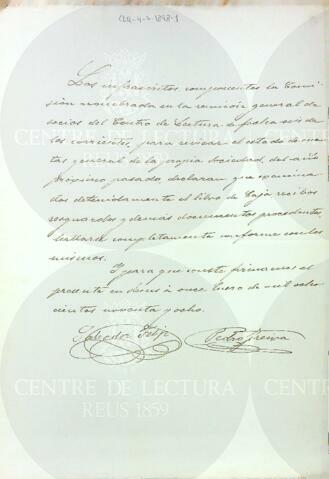 Los infrascritos, componentes la Comi-
sión nombrada en la reunión general de
socios del Centro de Lectura á fecha seis de
los corrientes, para revisar el estado de cuen-
tas general de la propia Sociedad, del año
próximo pasado, declaran que examina-
dos detenidamente el libro de Caja, recibos
resguardos y demás documentos procedentes,
hallarse completamente conforme con los
mismos.
Y para que conste firmamos el
presente en Reus á once Enero de mil ocho-
cientos noventa y ocho.
Salvador Pedro
CENTRE DE LECTURA
REUS 1859